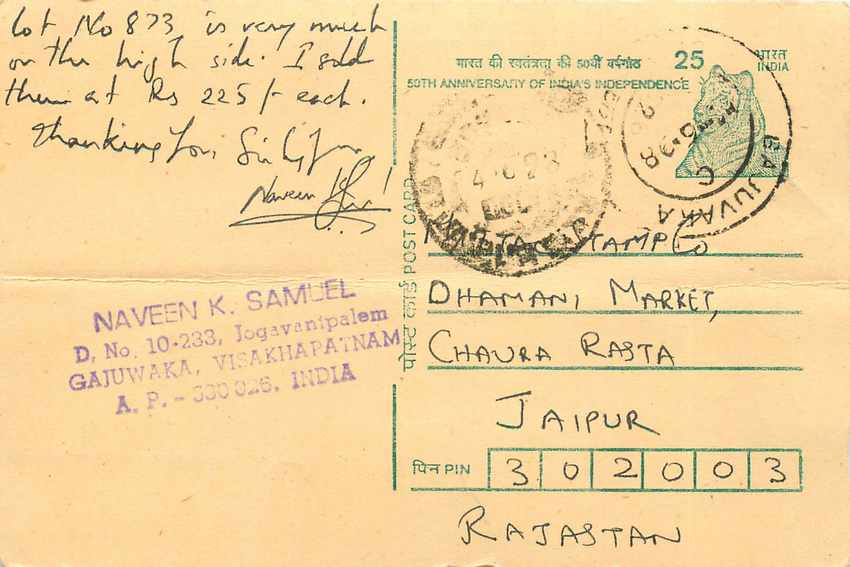 Lot No 873 is very much
on the high side. I sold
them at Rs 225/- each.
Thanking You, Sincerely
Naveen
NAVEEN K. SAMUEL
D. No. 10-233, Jogavanipalem
GAJUWAKA, VISAKHAPATNAM
A. P. - 530 026. INDIA
भारत की स्वतंत्रता की 50वीं वर्षगांठ
50TH ANNIVERSARY OF INDIA'S INDEPENDENCE
25
भारत
INDIA
GAJUVAKA
पोस्ट कार्ड POST CARD
STAMP Co
DHAMANI MARKET,
CHAURA RASTA
JAIPUR
पिन PIN 302003
RAJASTAN